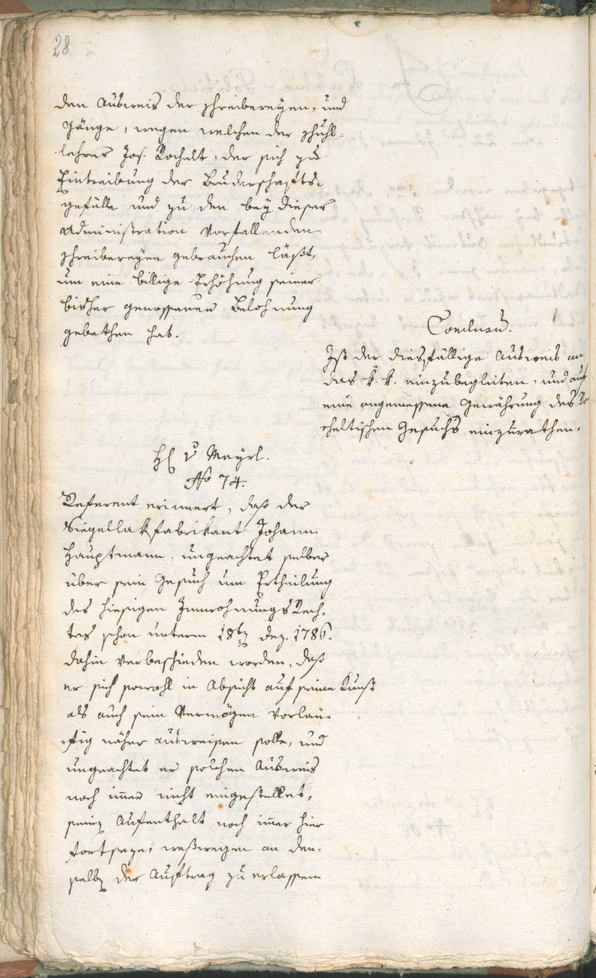 28
den Ausweis der schreibereyen, und
Gänge, wegen welchen der schuhl-
lehrer Jos. Rochelt, der sich zu
Eintreibung der Bruderschafts-
gefälle und zu den bey dieser
Administration vorfallenden
schreibereyen gebrauchen läßt,
um eine billige Erhöhung seiner
bisher genossenen Belohnung
gebethen hat.
Conclusum.
Ist der diesfällige Ausweis an
das k. k. einzubegleiten, und auf
eine angemessene Gewährung des Ro-
cheltischen Gesuchs einzurathen.
H v Mayrl.
No 74.
Referent erinnert, daß der
Siegellakfabrikant Johann
Hauptmann, ungeachtet selber
über sein Gesuch um Ertheilung
des hiesigen InnwohnungsRech-
tes schon unterm 18tn Dez. 1786.
dahin verbeschieden worden, daß
er sich sowohl in Absicht auf seine Kunst
als auch sein Vermögen vorläu-
fig näher ausweisen solle, und
ungeachtet er solchen Ausweis
noch imer nicht eingestellet,
seinen Aufenthalt noch imer hier
fortseze; weßwegen an den-
selben der Auftrag zu erlassen